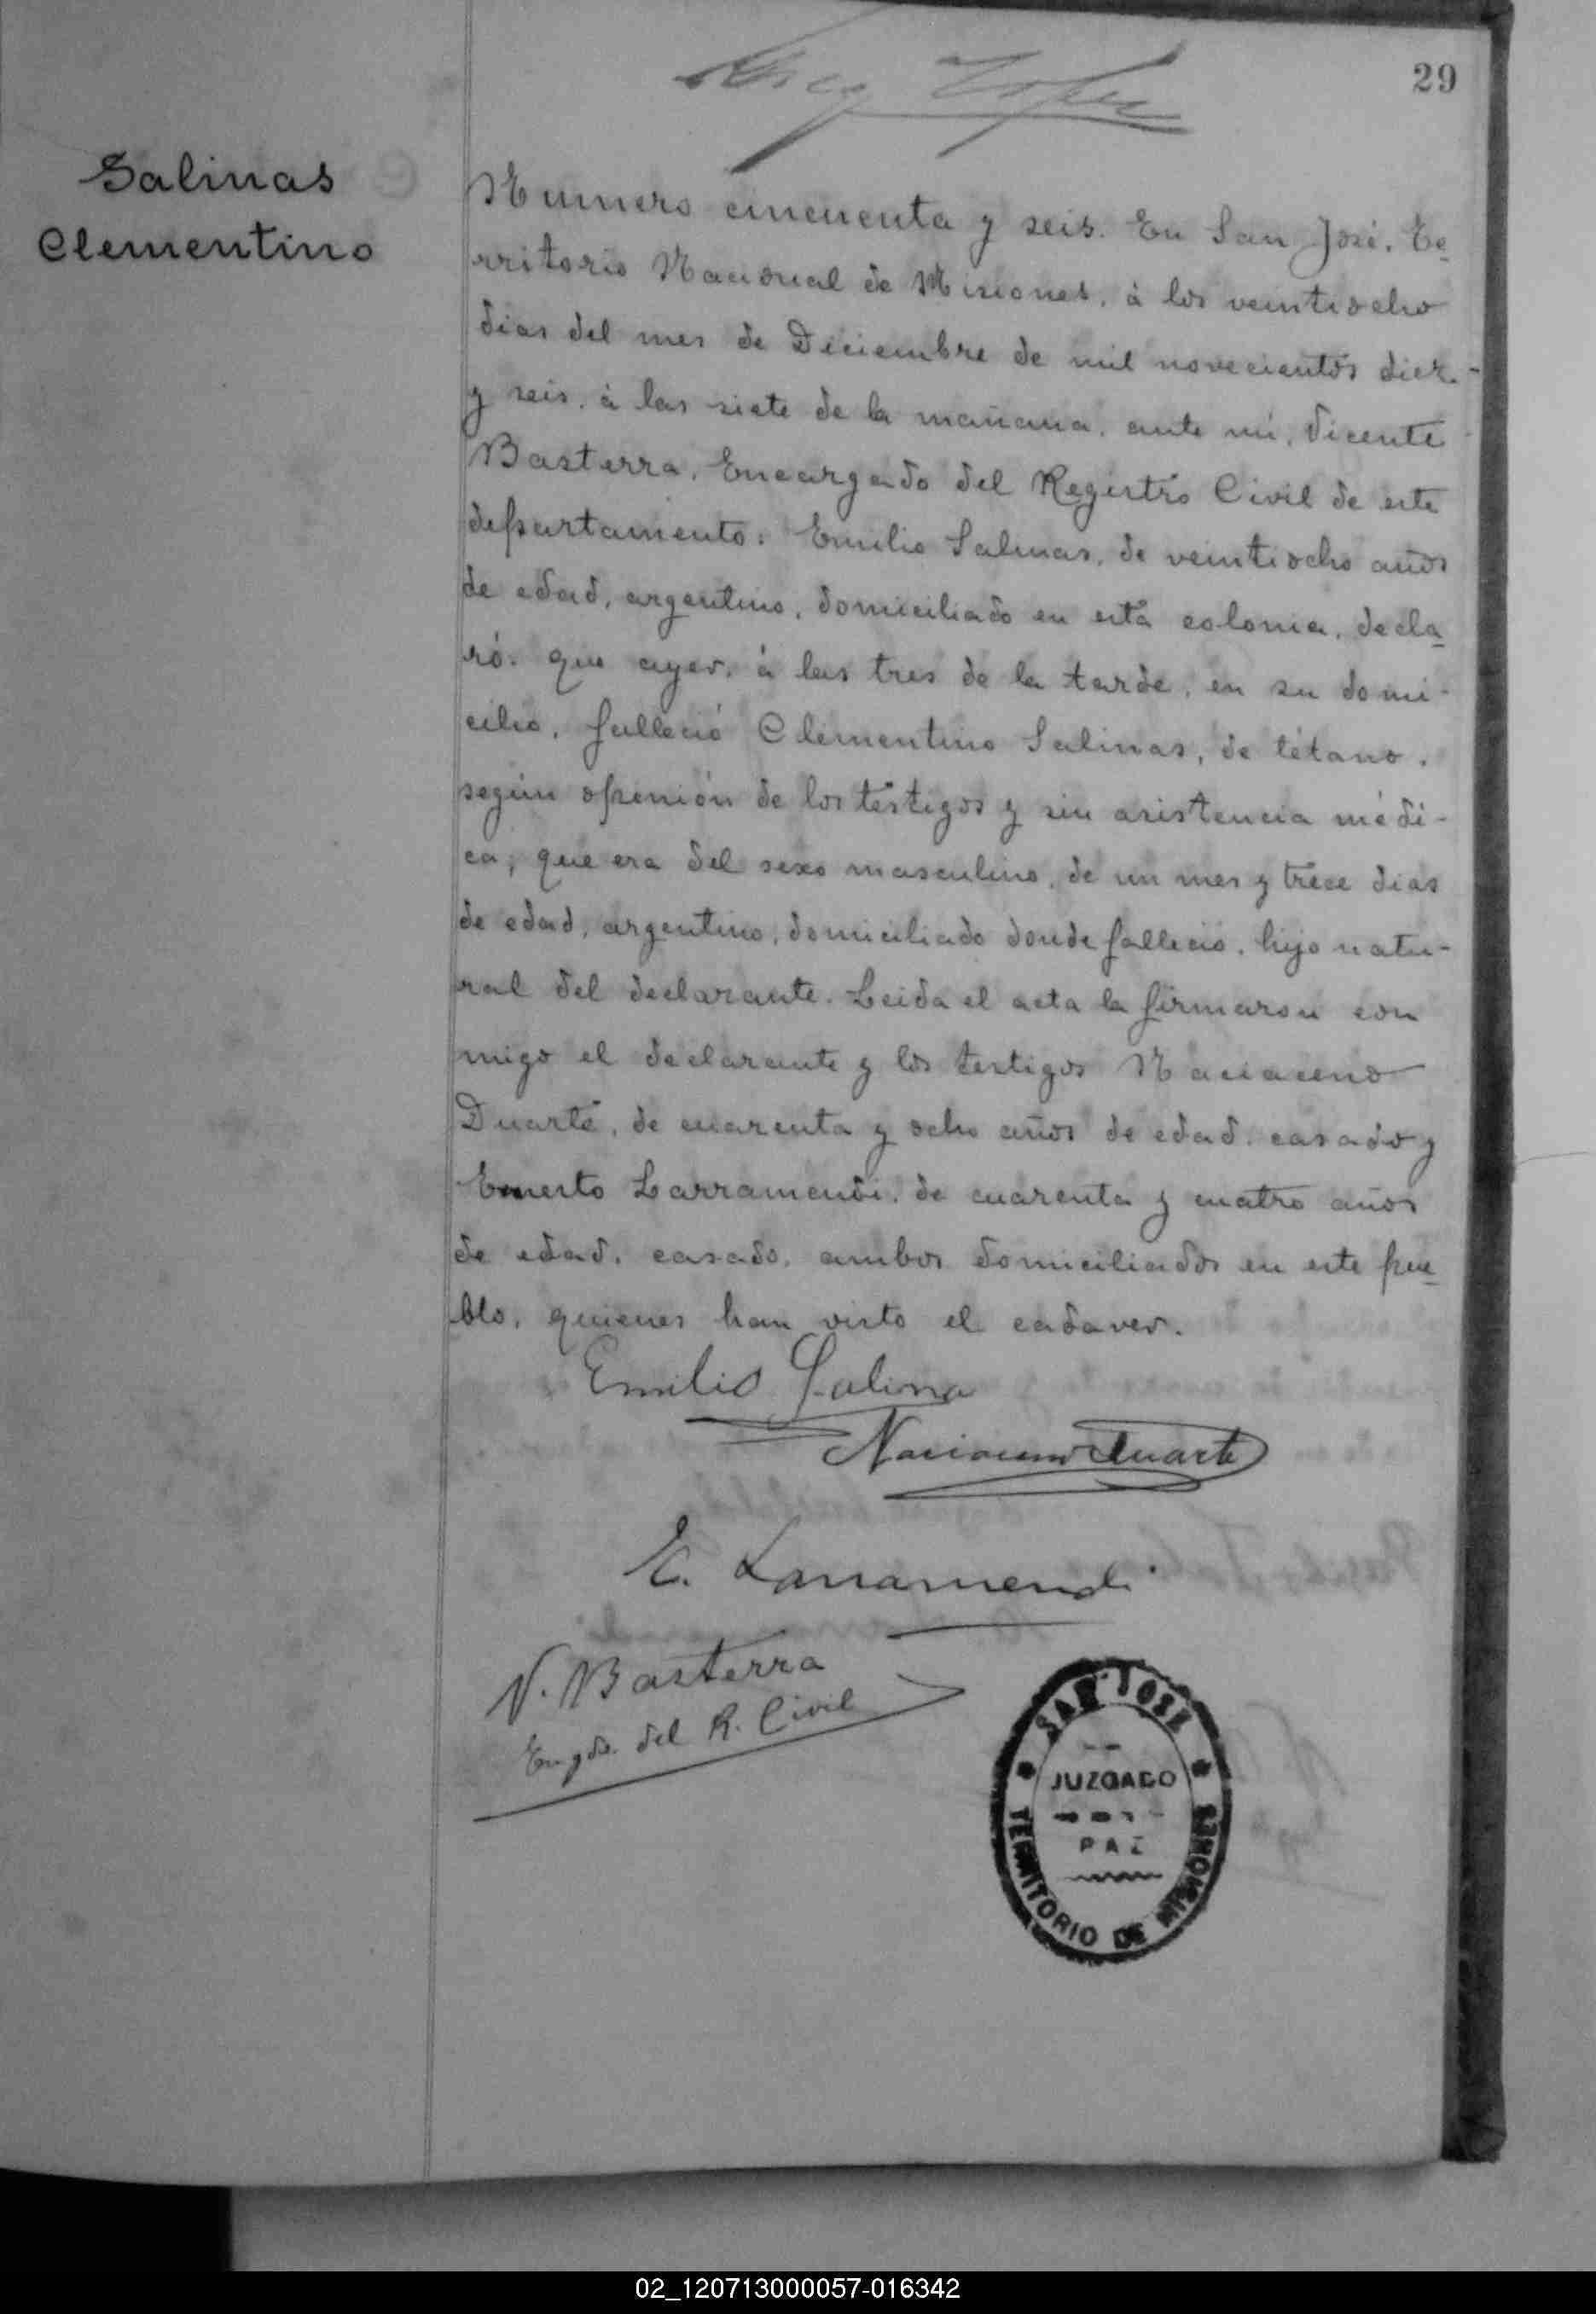 29
Lopez
Salinas
Clementino
Numero cincuenta y seis. En San José, Te
rritorio Nacional de Misiones, à los veintiocho
dias del mes de Diciembre de mil novecientos diez-
y seis, à las siete de la mañana, ante mi, Vicente
Basterra, Encargado del Registro Civil de este
departamento: Emilio Salinas, de veintiocho años
de edad, argentino, domiciliado en esta colonia, decla
ró: que ayer, à las tres de la tarde, en su domi-
cilio, falleció Clementino Salinas, de tétano,
según openión de los testigos y sin asistencia médi-
ca; que era del sexo masculino, de un mes y trece dias
de edad, argentino, domiciliado donde falleció, hijo natu-
ral del declarante. Leida el acta la firmaron con
migo el declarante y los testigos Naciaceno
Duarte, de cuarenta y ocho años de edad, casado y
Ernesto Larramendi, de cuarenta y cuatro años
de edad, casado, ambos domiciliados en este pue
blo, quienes han visto el cadaver.
Emilio Salina
Naciaceno Duarte
E. Larramendi
V. Basterra
Engdo. del R. Civil
SAN JOSE
JUZGADO
DE
PAZ
TERRITORIO DE MISIONES
02_120713000057-016342